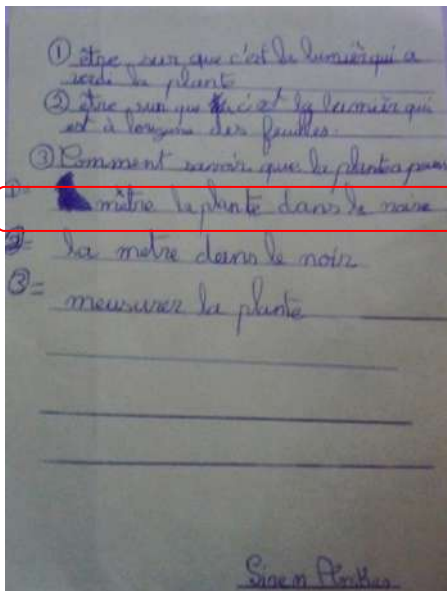 ① être sur que c'est la lumièr qui a
verdi la plante
② être sur que c'est la lumièr qui
est à l'origine des feuilles.
③ Comment savoir que la plante a
①= mètre la plante dans le noire
②= la metre dans le noir
③= meusurer la plante
Sinem